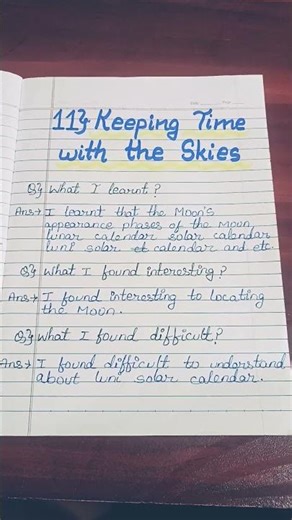 11} Keeping Time
with the Skies
Q} What I learnt?
Ans→ I learnt that the Moon's
appearance phases of the Moon,
lunar calendar solar calendar
luni solar calendar and etc.
Q} What I found interesting?
Ans→ I found interesting to locating
the Moon.
Q} What I found difficult?
Ans→ I found difficult to understand
about luni solar calendar.